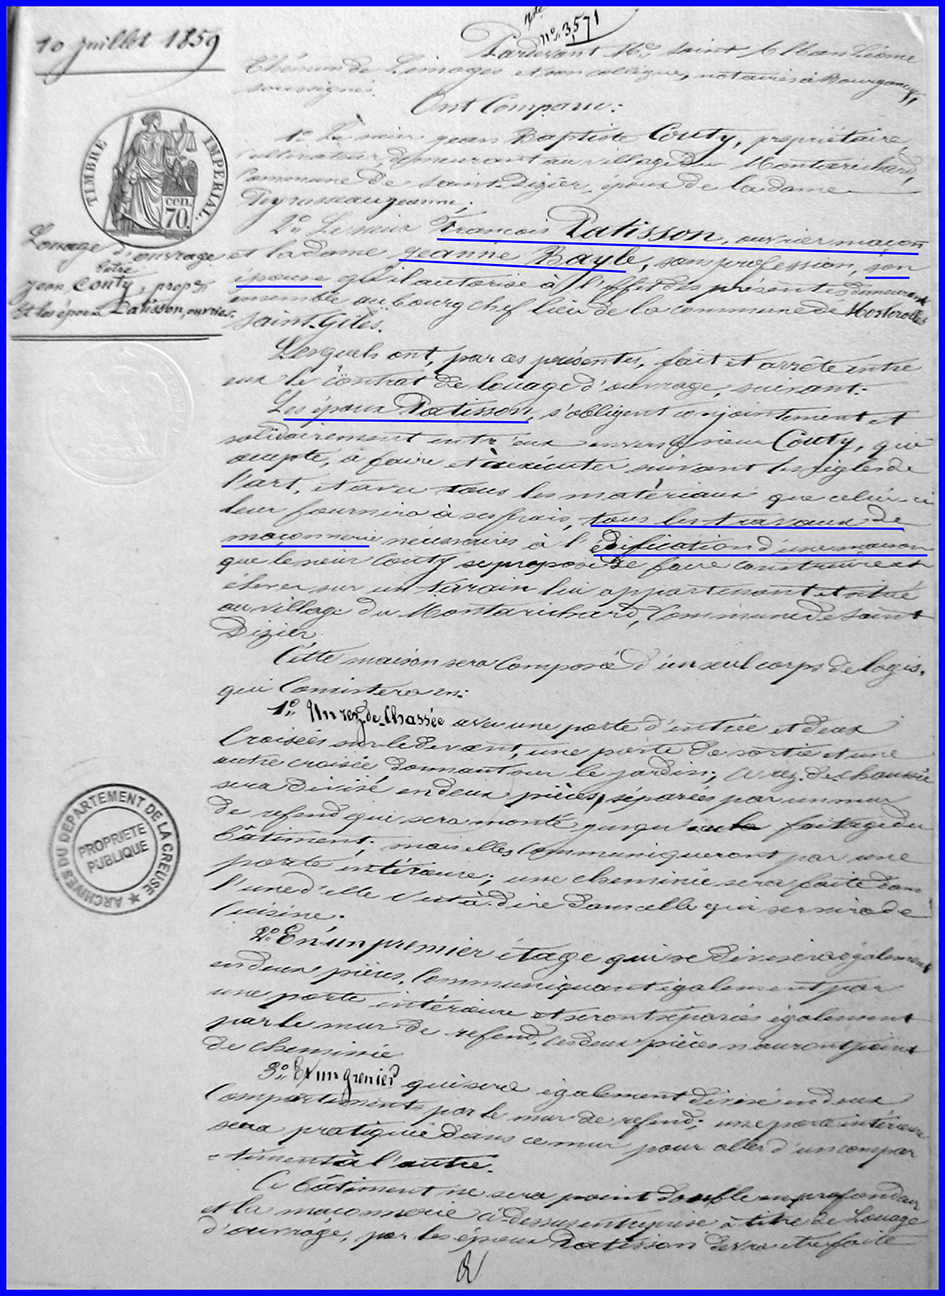 10 juillet 1859
nº 3,571
Pardevant Me. Saint
de Limoges et son collègue, notaires à Bourganeuf,
soussignés.
Ont Comparu:
1º. Le sieur Jean Baptiste Couty, propriétaire,
cultivateur, demeurant au village du Montarichard,
Commune de Saint-Dizier, époux de la dame
Peyrasseau Jeanne;
2º. Le sieur François Patisson, ouvrier maçon
et la dame Jeanne Bayle, sans profession, son
épouse qu'il autorise à l'effet des présentes demeurant
ensemble au bourg chef lieu de la commune de Mosterolles
Saint-Giles.
TIMBRE IMPERIAL
cen.
70.
Louage d'ouvrage
Entre
Jean Couty, propre
Et les époux Patisson, ouvriers
Lesquels ont, par ces présentes, fait et arrêté entre
eux le contrat de louage d'ouvrage, suivant:
Les époux Patisson, s'obligent conjointement et
solidairement entr'eux envers le sieur Couty, qui
accepte, à faire et à exécuter suivant les règles de
l'art, et avec tous les matériaux que celui-ci
leur fournira à ses frais, tous les travaux de
maçonnerie nécessaires à l'édification d'une maison
que le sieur Couty se propose de faire construire et
élever sur un terrain lui appartenant et situé
au village du Montarichard, Commune de Saint
Dizier.
Cette maison sera Composée d'un seul corps de logis,
qui Consistera en:
1º. Un rez-de-Chassée avec une porte d'entrée et deux
Croisées sur le devant, une porte de sortie et une
autre croisée donnant sur le jardin; ce rez-de-chaussée
sera divisé en deux pièces, séparées par un mur
de refend qui sera monté jusqu'au faîtage du
bâtiment; mais elles Communiqueront par une
porte intérieure; une cheminée sera faite dans
l'une d'elle c'est-à-dire dans celle qui servira de
Cuisine.
ARCHIVES DU DEPARTEMENT DE LA CREUSE
PROPRIETE
PUBLIQUE
2º. En un premier étage qui se divisera également
en deux pièces, Communiquant également par
une porte intérieure et seront séparées également
par le mur de refend, ces deux pièces n'auront point
de cheminée
3º. Et un grenier qui sera également divisé en deux
Compartiments par le mur de refend; une porte intérieure
sera pratiquée dans ce mur pour aller d'un compar
timent à l'autre.
Ce bâtiment ne sera point double en profondeur
et la maçonnerie ci-dessus entreprise à titre de Louage
d'ouvrage, par les époux Patisson devra être faite